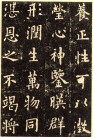 養正性可以㪚
瑩心神鑒映羣
形潤生萬物同
湛恩之不竭將